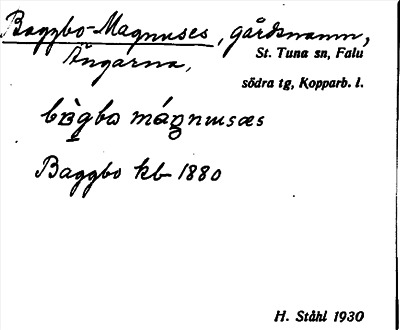 Baggbo-Magnuses, gårdsnamn,
St. Tuna sn, Falu
Ängarna,
södra tg, Kopparb. l.
Baggbo kb 1880
H. Ståhl 1930